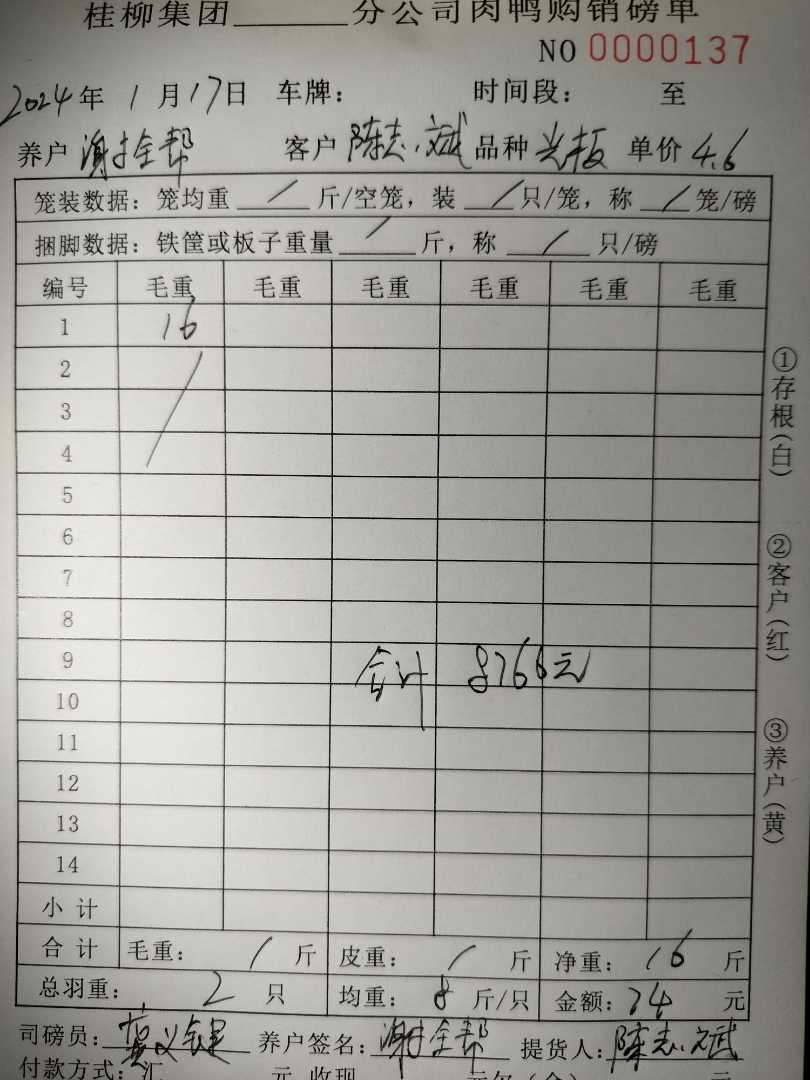 桂柳集团______分公司肉鸭购销磅单
NO 0000137
2024年 1月17日 车牌： 时间段： 至
养户 谢全帮 客户 陈志斌 品种 光板 单价 4.6
笼装数据：笼均重 / 斤/空笼，装 / 只/笼，称 / 笼/磅
捆脚数据：铁筐或板子重量 / 斤，称 / 只/磅
编号 毛重 毛重 毛重 毛重 毛重 毛重
1 16
2
3
4
5
6
7
8
9 合计 8766元
10
11
12
13
14
小计
合计 毛重： / 斤 皮重： / 斤 净重：16 斤
总羽重： 2 只 均重： 8 斤/只 金额：74 元
司磅员： 养户签名：谢全帮 提货人：陈志斌
付款方式：汇 元 收现 元欠（余） 元
①存根（白）
②客户（红）
③养户（黄）